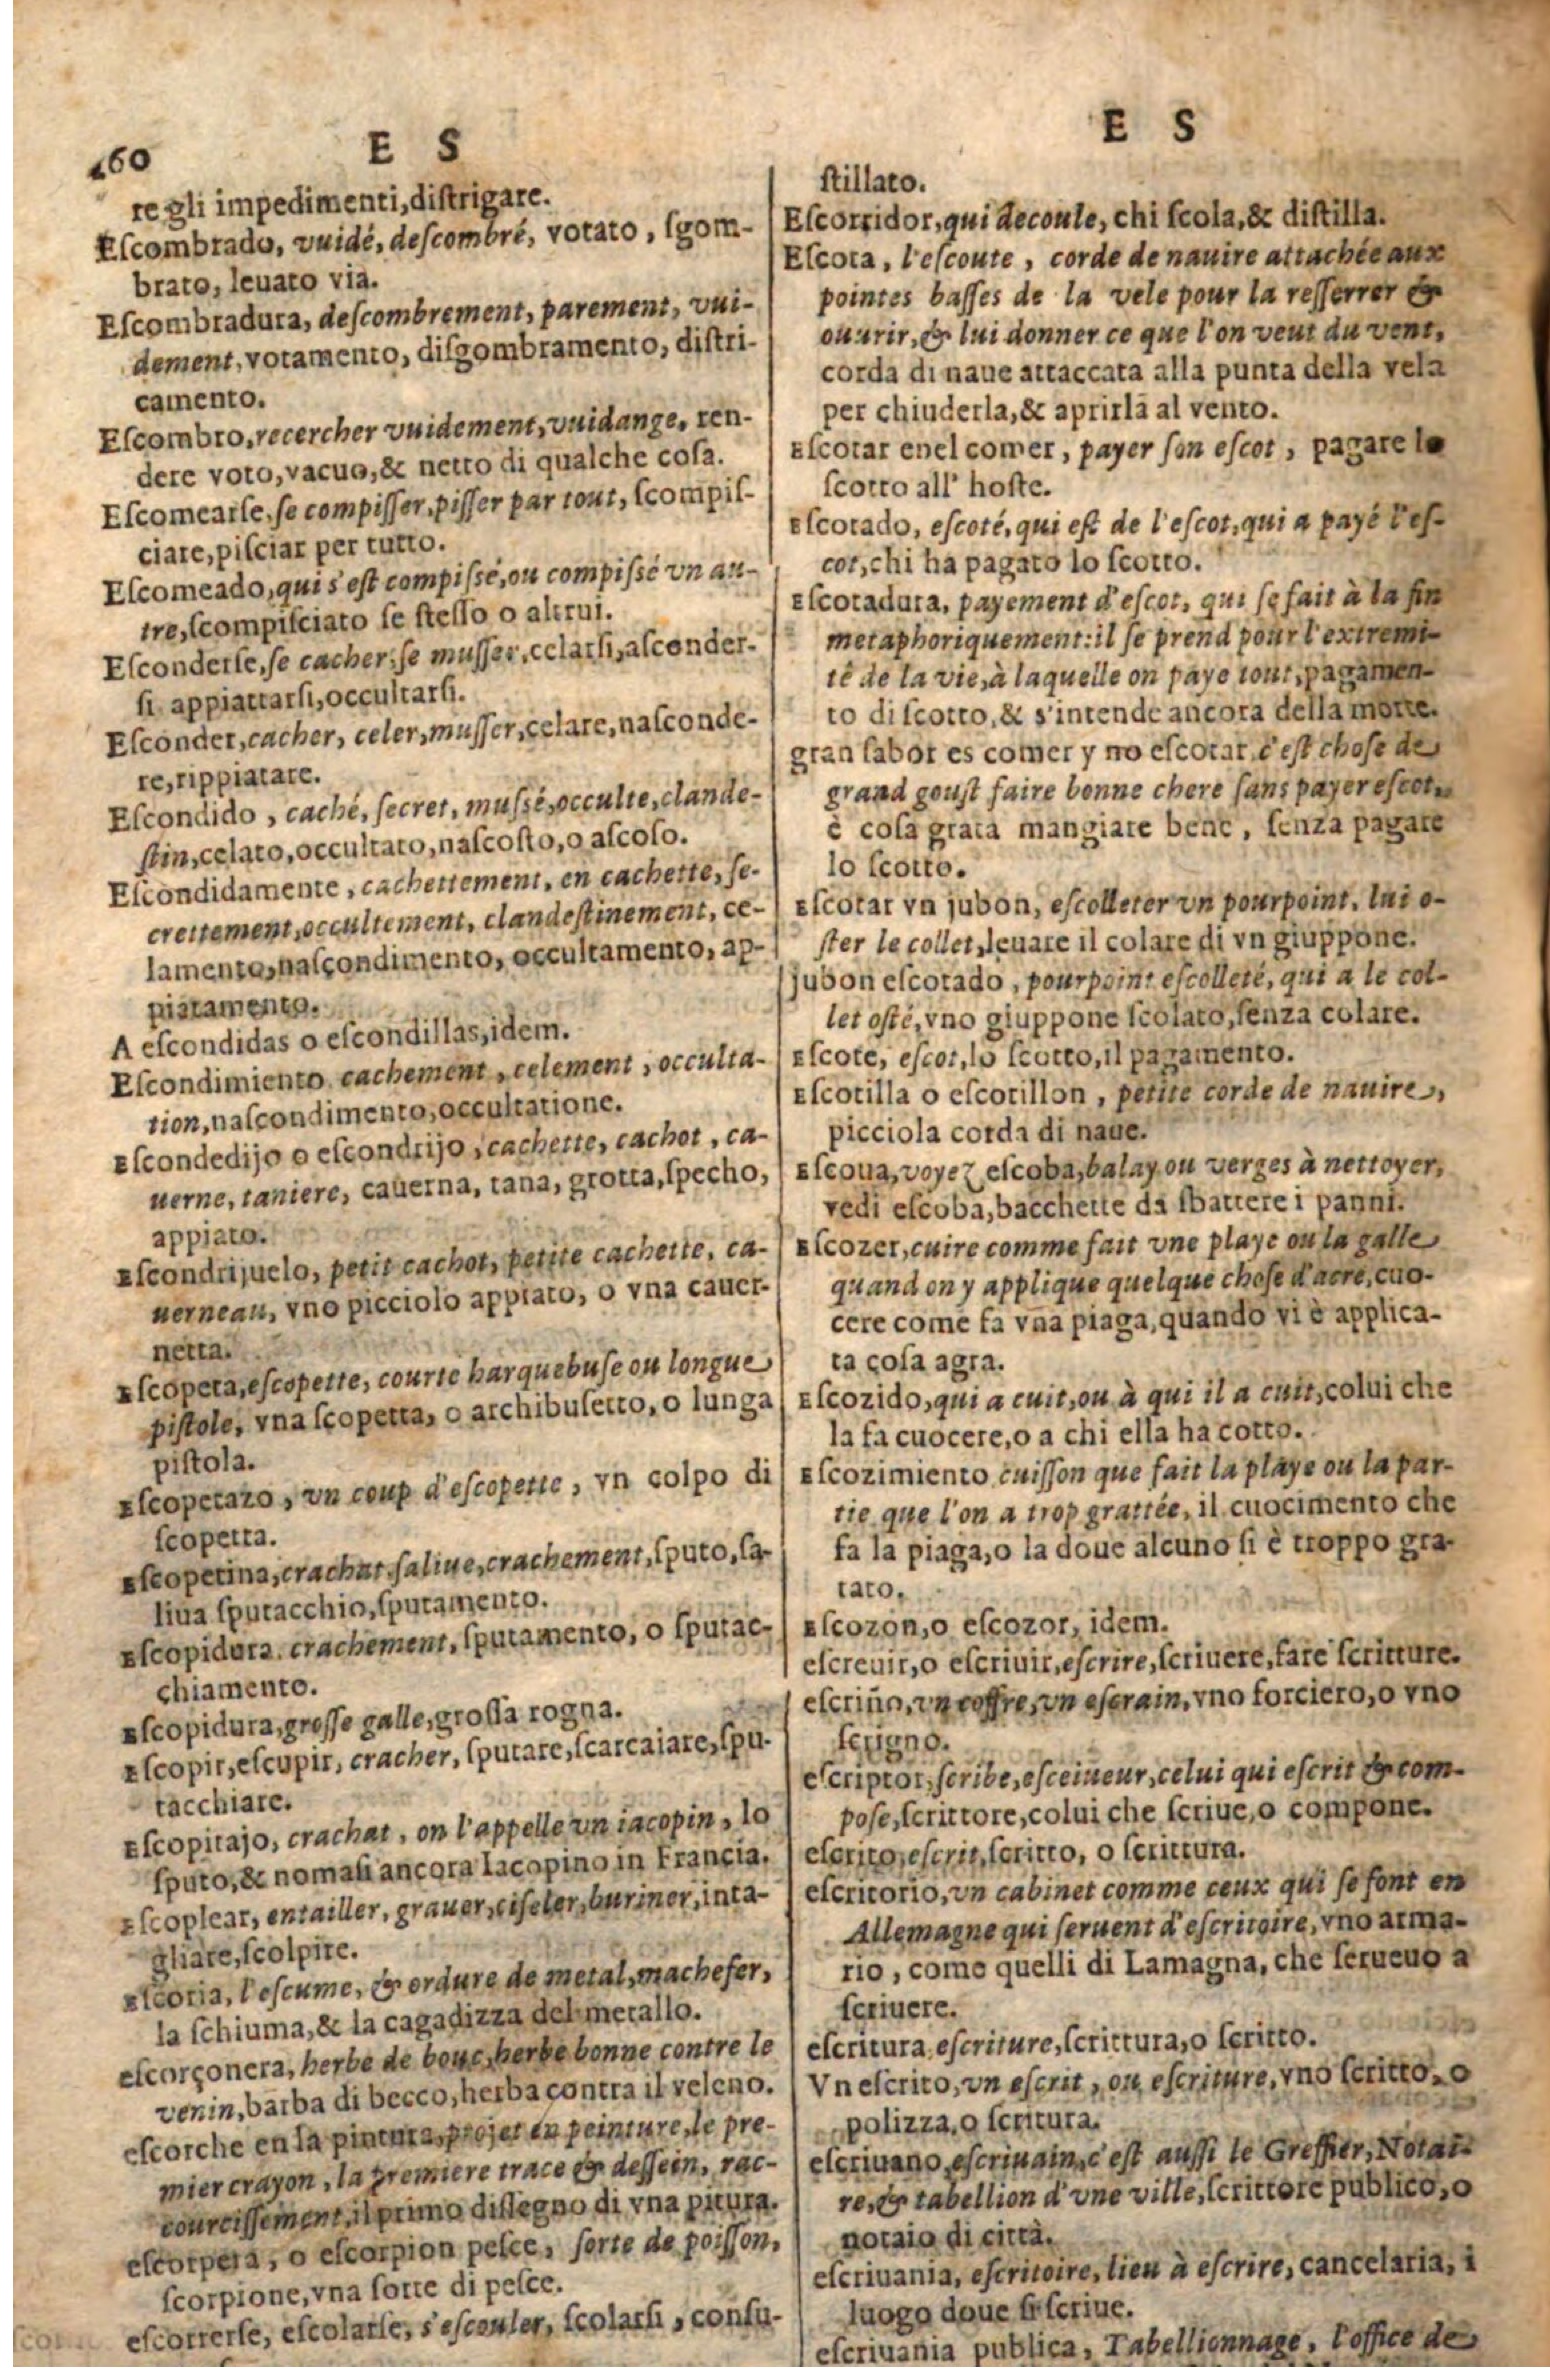 460 E S
re gli impedimenti,diſtrigare.
Eſcombrado, vuidé, deſcombré, votato, ſgom-
brato, leuato via.
Eſcombradura, deſcombrement, parement, vui-
dement, votamento, diſgombramento, diſtri-
camento.
Eſcombro, recercher vuidement, vuidange, ren-
dere voto, vacuo, & netto di qualche coſa.
Eſcomearſe, ſe compiſſer, piſſer par tout, ſcompiſ-
ciare, piſciar per tutto.
Eſcomeado, qui s'eſt compiſſé, ou compiſſé vn au-
tre, ſcompiſciato ſe ſteſſo o altrui.
Eſconderſe, ſe cacher, ſe muſſer, celarſi, aſconder-
ſi appiattarſi, occultarſi.
Eſconder, cacher, celer, muſſer, celare, naſconde-
re, rippiatare.
Eſcondido, caché, ſecret, muſſé, occulte, clande-
ſtin, celato, occultato, naſcoſto, o aſcoſo.
Eſcondidamente, cachettement, en cachette, ſe-
crettement, occultement, clandeſtinement, ce-
lamento, naſcondimento, occultamento, ap-
piatamento.
A eſcondidas o eſcondillas, idem.
Eſcondimiento cachement, celement, occulta-
tion, naſcondimento, occultatione.
Eſcondedijo o eſcondrijo, cachette, cachot, ca-
uerne, taniere, cauerna, tana, grotta, ſpecho,
appiato.
Eſcondrijuelo, petit cachot, petite cachette, ca-
uerneau, vno picciolo appiato, o vna cauer-
netta.
Eſcopeta, eſcopette, courte harquebuſe ou longue
piſtole, vna ſcopetta, o archibuſetto, o lunga
piſtola.
Eſcopetazo, vn coup d'eſcopette, vn colpo di
ſcopetta.
Eſcopetina, crachat, ſaliue, crachement, ſputo, ſa-
liua ſputacchio, ſputamento.
Eſcopidura, crachement, ſputamento, o ſputac-
chiamento.
Eſcopidura, groſſe galle, groſſa rogna.
Eſcopir, eſcupir, cracher, ſputare, ſcarcaiare, ſpu-
tacchiare.
Eſcopitajo, crachat, on l'appelle vn iacopin, lo
ſputo, & nomaſi ancora Iacopino in Francia.
Eſcoplear, entailler, grauer, ciſeler, buriner, inta-
gliare, ſcolpire.
Eſcoria, l'eſcume, & ordure de metal, machefer,
la ſchiuma, & la cagadizza del metallo.
eſcorçonera, herbe de bouc, herbe bonne contre le
venin, barba di becco, herba contra il veleno.
eſcorche en la pintura, projet en peinture, le pre-
mier crayon, la premiere trace & deſſein, rac-
courciſſement, il primo diſſegno di vna pitura.
eſcorpera, o eſcorpion peſce, ſorte de poiſſon,
ſcorpione, vna ſorte di peſce.
eſcorrerſe, eſcolarſe, s'eſcouler, ſcolarſi, conſu-
E S
ſtillato.
Eſcorridor, qui decoule, chi ſcola, & diſtilla.
Eſcota, l'eſcoute, corde de nauire attachée aux
pointes baſſes de la vele pour la reſſerrer &
ouurir, & lui donner ce que l'on veut du vent,
corda di naue attaccata alla punta della vela
per chiuderla, & aprirla al vento.
Eſcotar enel comer, payer ſon eſcot, pagare lo
ſcotto all' hoſte.
Eſcotado, eſcoté, qui eſt de l'eſcot, qui a payé l'eſ-
cot, chi ha pagato lo ſcotto.
Eſcotadura, payement d'eſcot, qui ſe fait à la fin
metaphoriquement: il ſe prend pour l'extremi-
té de la vie, à laquelle on paye tout, pagamen-
to di ſcotto, & s'intende ancora della morte.
gran ſabor es comer y no eſcotar, c'eſt choſe de
grand gouſt faire bonne chere ſans payer eſcot,
è coſa grata mangiare bene, ſenza pagare
lo ſcotto.
Eſcotar vn jubon, eſcolleter vn pourpoint, lui o-
ſter le collet, leuare il colare di vn giuppone.
jubon eſcotado, pourpoint eſcolleté, qui a le col-
let oſté, vno giuppone ſcolato, ſenza colare.
Eſcote, eſcot, lo ſcotto, il pagamento.
Eſcotilla o eſcotillon, petite corde de nauire,
picciola corda di naue.
Eſcoua, voyez eſcoba, balay ou verges à nettoyer,
vedi eſcoba, bacchette da sbattere i panni.
Eſcozer, cuire comme fait vne playe ou la galle
quand on y applique quelque choſe d'acre, cuo-
cere come fa vna piaga, quando vi è applica-
ta coſa agra.
Eſcozido, qui a cuit, ou à qui il a cuit, colui che
la fa cuocere, o a chi ella ha cotto.
Eſcozimiento cuiſſon que fait la playe ou la par-
tie que l'on a trop grattée, il cuocimento che
fa la piaga, o la doue alcuno ſi è troppo gra-
tato.
Eſcozon, o eſcozor, idem.
eſcreuir, o eſcriuir, eſcrire, ſcriuere, fare ſcritture.
eſcriño, vn coffre, vn eſcrain, vno forciero, o vno
ſcrigno.
eſcriptor, ſcribe, eſceiueur, celui qui eſcrit & com-
poſe, ſcrittore, colui che ſcriue, o compone.
eſcrito, eſcrit, ſcritto, o ſcrittura.
eſcritorio, vn cabinet comme ceux qui ſe font en
Allemagne qui ſeruent d'eſcritoire, vno arma-
rio, come quelli di Lamagna, che ſerueuo a
ſcriuere.
eſcritura eſcriture, ſcrittura, o ſcritto.
Vn eſcrito, vn eſcrit, ou eſcriture, vno ſcritto, o
polizza, o ſcritura.
eſcriuano, eſcriuain, c'eſt auſſi le Greffier, Notai-
re, & tabellion d'vne ville, ſcrittore publico, o
notaio di città.
eſcriuania, eſcritoire, lieu à eſcrire, cancelaria, i
luogo doue ſi ſcriue.
eſcriuania publica, Tabellionnage, l'office de